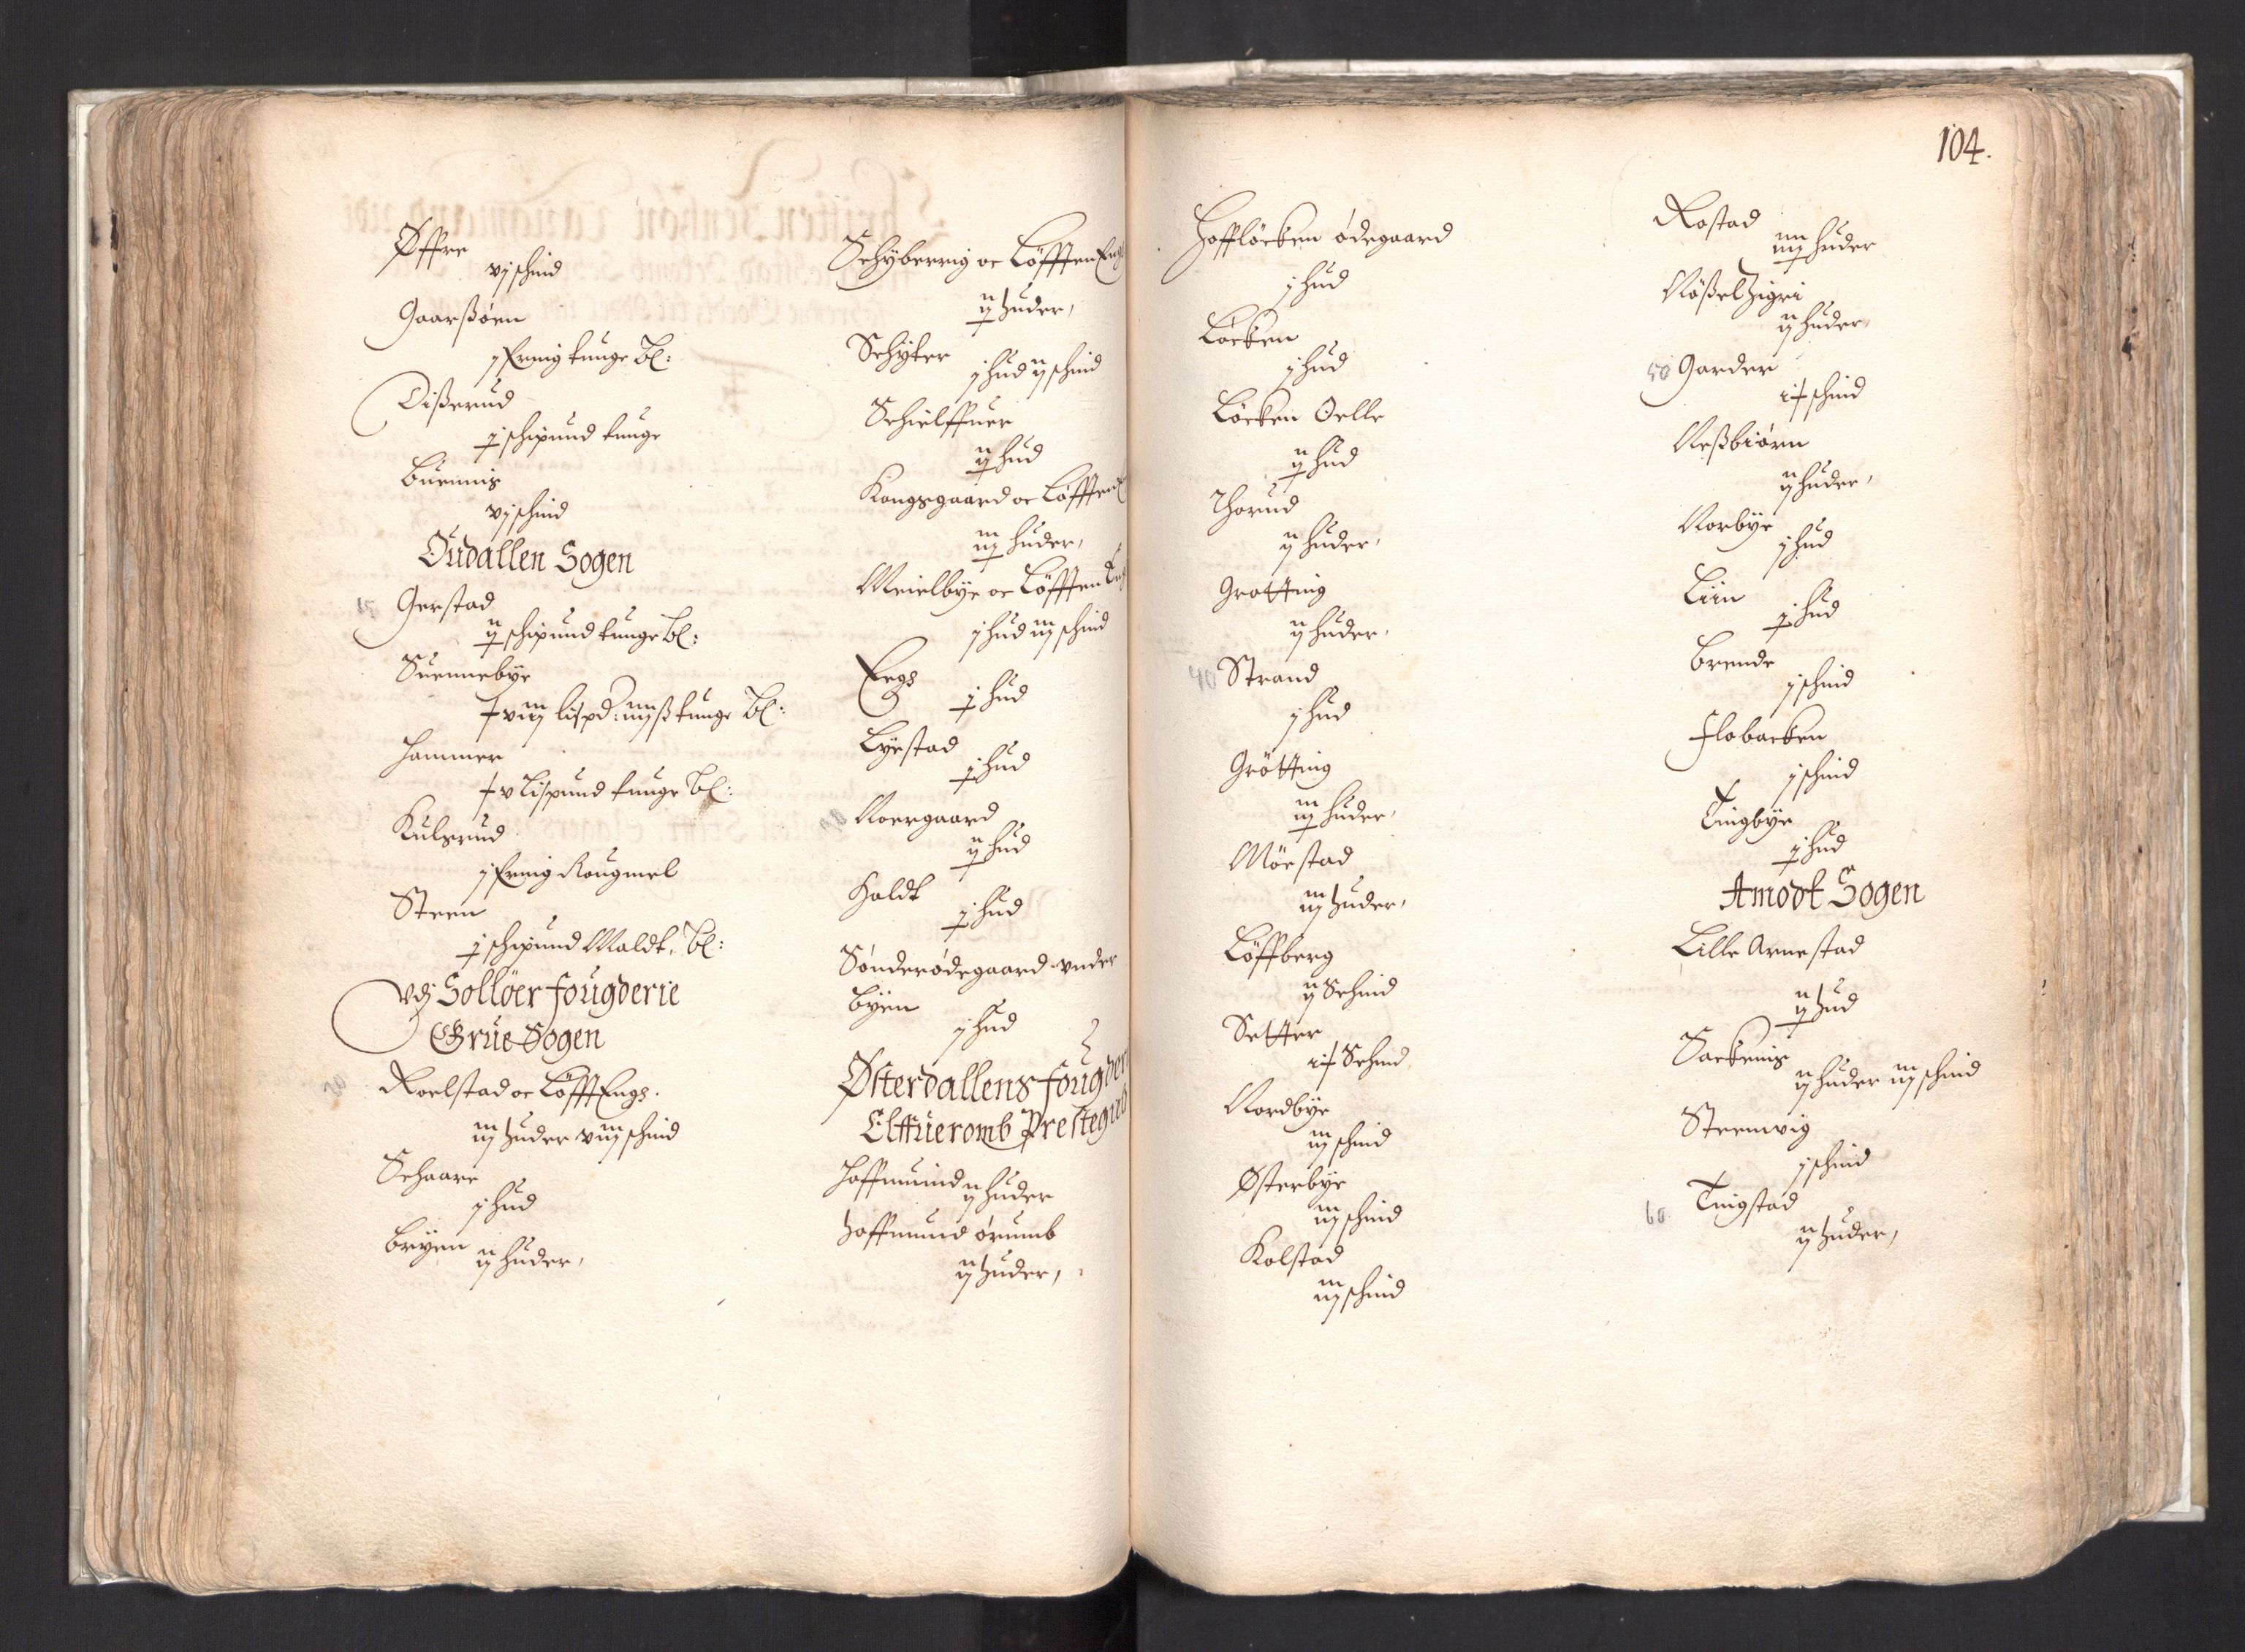 104.
Øffre
vj schind
Gaarsßörn
j fring tunge bl:
Disserud
j schipund tunge
Buernis
vj schind
Oudallen Sogen
15
Gerstad
ij schipund tunge bl:
Suennebye
viij lispd: iiij ß tunge bl:
Hammer
v lispund tunge bl:
Kulsrud
j fring Rougmel
Steen
j schipund Maldt. bl:
vdj Solløer fougderie
Grue Sogen
20
Roelstad oc Löfft Engs.
iij huder viij schind
Schaare
j hud
Bryen
ij huder,
Schyberrig oc Löfften Engs
ij huder,
Schyter
j hud ij schind
Schielffuer
ij hud
Kongsgaard oc Löfften
iij huder,
Meielbye oc Löfften
j hud iij schind
Eegs
j hud
Lystad
j hud
Noergaard
ij hud
Holdt
j hud
Sönderödegaard vnder
Byen
j hud
Østerdallens fougder
Elffueromb Prestegield
Hoffmuind
ij huder
Hoffmund örumb
ij huder,
Hofflöcken ödegaard
j hud
Löcken
j hud
Löcken Oelle
ij hud
Thorud
ij huder,
Grotting
ij huder,
40
Strand
j hud
Grötting
iij huder,
Mörstad
iij huder,
Löffberg
ij Schind
Setter
Schind
Nordbye
iij schind
Østerbye
iij schind
Kolstad
iij schind
Rostad
iiij huder
Nößel
ij huder,
50
Garder
schind
Nesßbiörn
ij huder,
Norbye
j hud
Lien
j hud
Brende
j schind
Flobacken
j schind
Tingbye
j hud
Amodt Sogen
Lille Arnestad
ij hud
Sackenis
ij huder iij schind
Steenvig
j schind
60
Tingstad
ij huder,